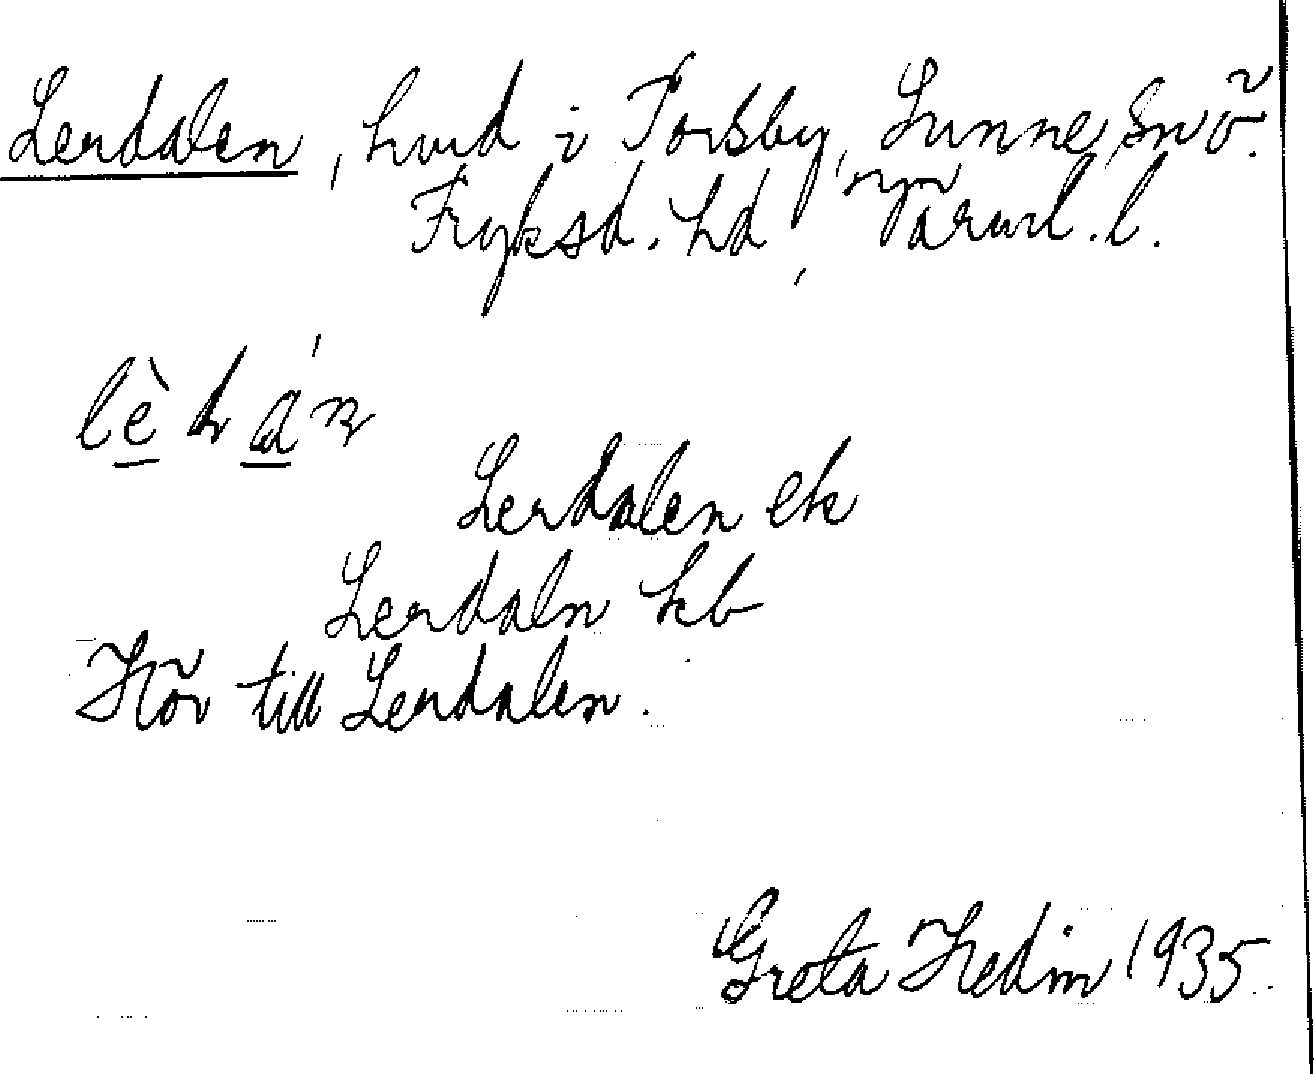 Lerdalen, hmd i Torsby, Sunne snö.
Fryksd. hd, Värml. l.
Lerdalen ek
Lerdaln kb
Hör till Lerdalen.
Greta Hedin 1935.